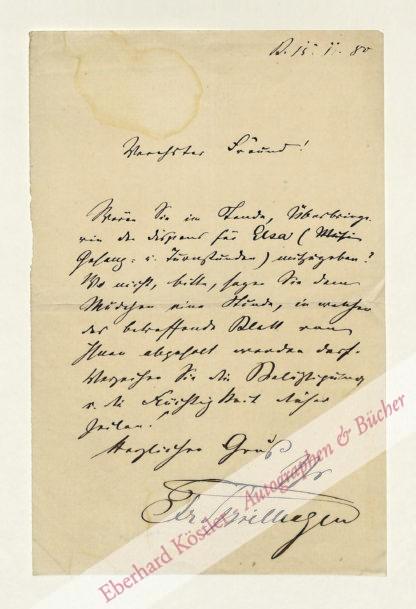 B. 15. 11. 80
Verehrter Freund!
Wären Sie im Stande, Überbringe-
rin den Dispens für Elsa (
Gesang- u. Turnstunden) mitzugeben?
Wo nicht, bitte, sagen Sie dem
Mädchen eine Stunde, in welcher
das betreffende Blatt von
Ihnen abgeholt werden darf.
Verzeihen Sie die Belästigung
u. die Flüchtigkeit dieser
Zeilen.
Herzlichen Gruß
Ihr
Fr. Spielhagen
Eberhard Köstler Autographen & Bücher